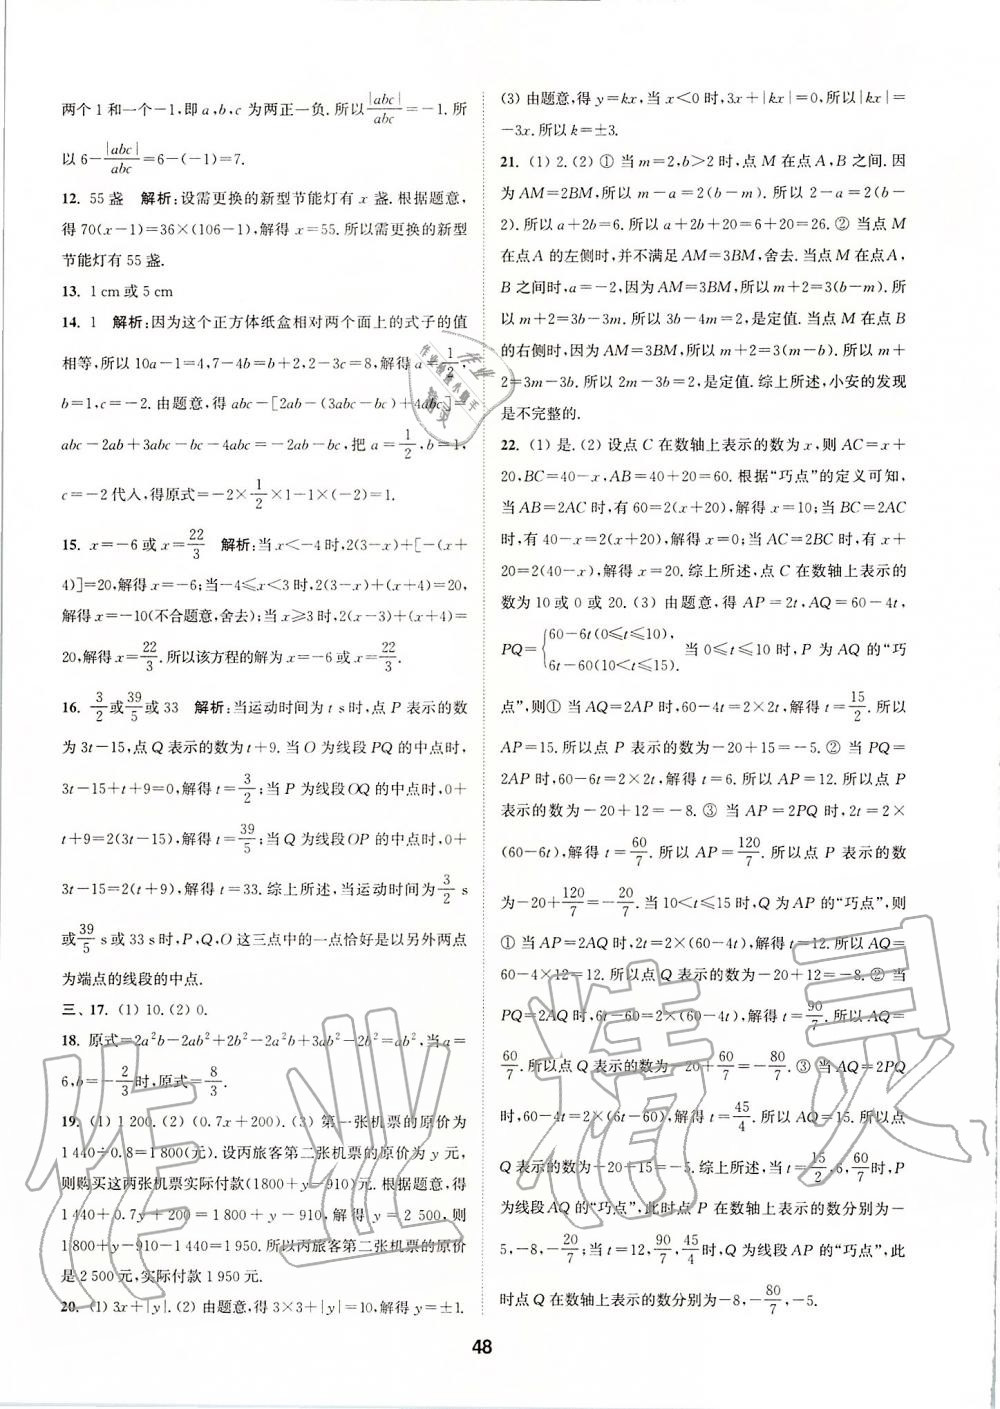 两个1和一个-1,即a,b,c为两正一负.所以|abc|/abc=-1.所
以6-|abc|/abc=6-(-1)=7.
12. 55盏 解析:设需更换的新型节能灯有x盏.根据题意,
得70(x-1)=36×(106-1),解得x=55.所以需更换的新型
节能灯有55盏.
13. 1 cm或5 cm
14. 1 解析:因为这个正方体纸盒相对两个面上的式子的值
相等,所以10a-1=4,7-4b=b+2,2-3c=8,解得a=1/2,
b=1,c=-2.由题意,得abc-[2ab-(3abc-bc)+4abc]=
abc-2ab+3abc-bc-4abc=-2ab-bc,把a=1/2,b=1,
c=-2代入,得原式=-2×1/2×1-1×(-2)=1.
15. x=-6或x=22/3 解析:当x<-4时,2(3-x)+[-(x+
4)]=20,解得x=-6;当-4≤x<3时,2(3-x)+(x+4)=20,
解得x=-10(不合题意,舍去);当x≥3时,2(x-3)+(x+4)=
20,解得x=22/3.所以该方程的解为x=-6或x=22/3.
16. 3/2或39/5或33 解析:当运动时间为t s时,点P表示的数
为3t-15,点Q表示的数为t+9.当O为线段PQ的中点时,
3t-15+t+9=0,解得t=3/2;当P为线段OQ的中点时,0+
t+9=2(3t-15),解得t=39/5;当Q为线段OP的中点时,0+
3t-15=2(t+9),解得t=33.综上所述,当运动时间为3/2 s
或39/5 s或33 s时,P,Q,O这三点中的一点恰好是以另外两点
为端点的线段的中点.
三、17. (1) 10.(2) 0.
18. 原式=2a²b-2ab²+2b²-2a²b+3ab²-2b²=ab²,当a=
6,b=-2/3时,原式=8/3.
19. (1) 1 200.(2) (0.7x+200).(3) 第一张机票的原价为
1 440÷0.8=1 800(元).设丙旅客第二张机票的原价为y元,
则购买这两张机票实际付款(1800+y-910)元.根据题意,得
1 440+0.7y+200=1 800+y-910,解得y=2 500,则
1 800+y-910-1 440=1 950.所以丙旅客第二张机票的原价
是2 500元,实际付款1 950元.
20. (1) 3x+|y|.(2) 由题意,得3×3+|y|=10,解得y=±1.
(3) 由题意,得y=kx,当x<0时,3x+|kx|=0,所以|kx|=
-3x.所以k=±3.
21. (1) 2.(2) ① 当m=2,b>2时,点M在点A,B之间.因
为AM=2BM,所以m-a=2(b-m).所以2-a=2(b-
2).所以a+2b=6.所以a+2b+20=6+20=26.② 当点M
在点A的左侧时,并不满足AM=3BM,舍去.当点M在点A,
B之间时,a=-2,因为AM=3BM,所以m+2=3(b-m).所
以m+2=3b-3m.所以3b-4m=2,是定值.当点M在点B
的右侧时,因为AM=3BM,所以m+2=3(m-b).所以m+
2=3m-3b.所以3b-2m=2,是定值.综上所述,小安的发现
是不完整的.
22. (1) 是.(2) 设点C在数轴上表示的数为x,则AC=x+
20,BC=40-x,AB=40+20=60.根据“巧点”的定义可知,
当AB=2AC时,有60=2(x+20),解得x=10;当BC=2AC
时,有40-x=2(x+20),解得x=0;当AC=2BC时,有x+
20=2(40-x),解得x=20.综上所述,点C在数轴上表示的
数为10或0或20.(3) 由题意,得AP=2t,AQ=60-4t,
PQ={60-6t(0≤t≤10), 6t-60(10<t≤15). 当0≤t≤10时,P为AQ的“巧
点”,则① 当AQ=2AP时,60-4t=2×2t,解得t=15/2.所以
AP=15.所以点P表示的数为-20+15=-5.② 当PQ=
2AP时,60-6t=2×2t,解得t=6.所以AP=12.所以点P
表示的数为-20+12=-8.③ 当AP=2PQ时,2t=2×
(60-6t),解得t=60/7.所以AP=120/7.所以点P表示的数
为-20+120/7=-20/7.当10<t≤15时,Q为AP的“巧点”,则
① 当AP=2AQ时,2t=2×(60-4t),解得t=12.所以AQ=
60-4×12=12.所以点Q表示的数为-20+12=-8.② 当
PQ=2AQ时,6t-60=2×(60-4t),解得t=90/7.所以AQ=
60/7.所以点Q表示的数为-20+60/7=-80/7.③ 当AQ=2PQ
时,60-4t=2×(6t-60),解得t=45/4.所以AQ=15.所以点
Q表示的数为-20+15=-5.综上所述,当t=15/2,6,60/7时,P
为线段AQ的“巧点”,此时点P在数轴上表示的数分别为-
5,-8,-20/7;当t=12,90/7,45/4时,Q为线段AP的“巧点”,此
时点Q在数轴上表示的数分别为-8,-80/7,-5.
48
作业精灵